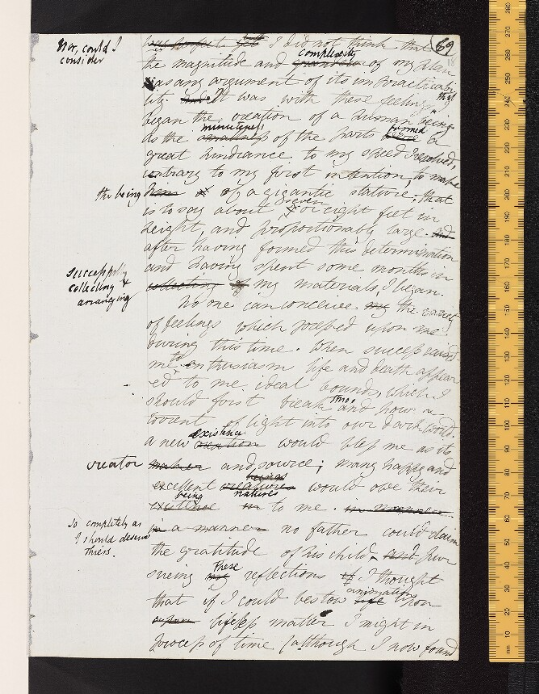 Nor, could I
consider
I did not think that 69
complexity
the magnitude and grandeur of my plan
was any argument of its impracticabi
lity. It was with these feelings that I
began the creation of a human being.
minuteness formed
As the smallness of the parts a
great hindrance to my speed I resolved,
contrary to my first intention, to make
the being of a gigantic stature; that
seven
is to say about or eight feet in
height, and proportionably large. And
after having formed this determination
and having spent some months in
successfully
collecting &
arranging
collecting my materials, I began.
No one can conceive the variety
of feelings which pressed upon me
during this time. When success raised
to
me enthusiasm life and death appear
ed to me ideal bounds which I
should first break thro' and pour a
torrent of light into our dark world.
existence
a new creation would bless me as its
creator
maker and source; many happy and
excellent creatures would owe their
being natures
existence to me. in a manner
So completely as
I should deserve
theirs.
in a manner no father could claim
the gratitude of his child. And Pur
These
suing my reflections if I thought
animation
that if I could bestow life upon
lifeless matter I might in
process of time (although I now found